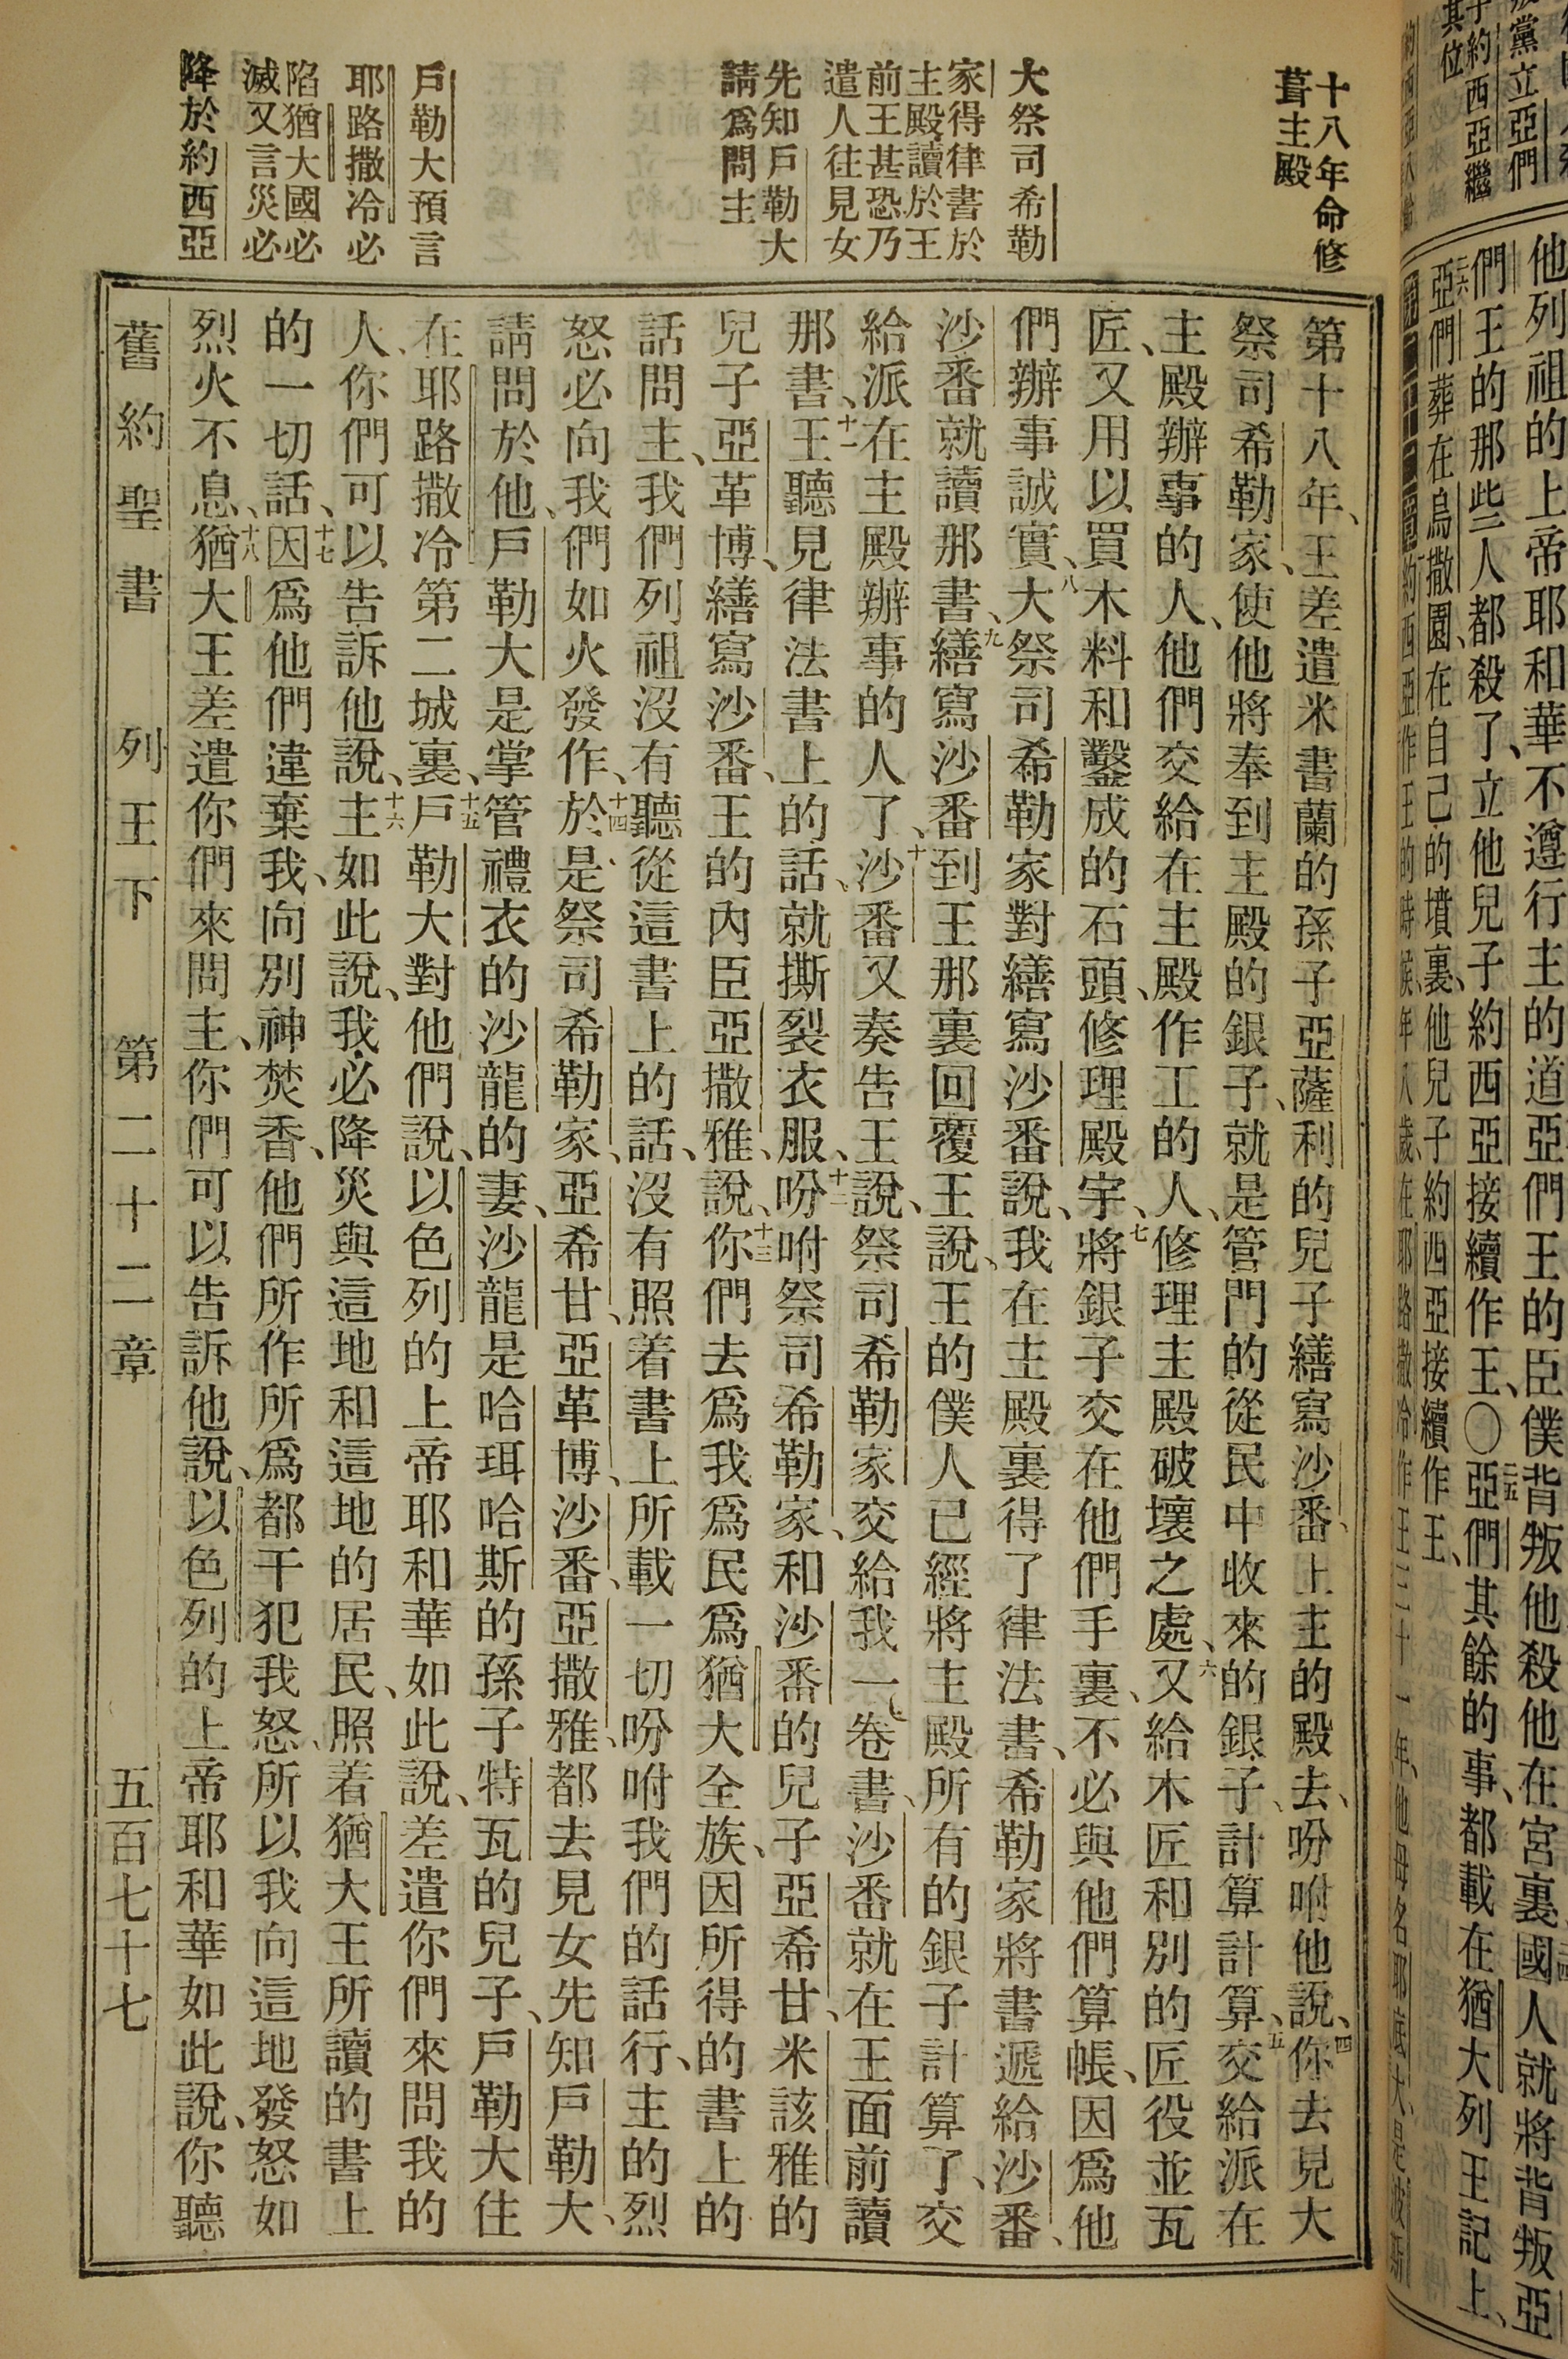 他列祖的上帝耶和華不遵行主的道亞們王的臣僕背叛他殺他在宮裏國人就將背叛亞
們王的那些人都殺了、立他兒子約西亞接續作王、〇亞們其餘的事、都載在猶大列王記上、
亞們葬在烏撒園、在自己的墳裏、他兒子約西亞接續作王、
十八年命修
葺主殿
大祭司希勒
家得律書於
主殿讀於王
前王甚恐乃
遣人往見女
先知戶勒大
請爲問主
戶勒大預言
耶路撒冷必
陷猶大國必
滅又言災必
降於約西亞
第十八年、王差遣米書蘭的孫子亞薩利的兒子繕寫沙番、上主的殿去、吩咐他說、四你去見大
祭司希勒家、使他將奉到主殿的銀子、就是管門的從民中收來的銀子、計算計算、五交給派在
主殿辦事的人、他們交給在主殿作工的人、修理主殿破壞之處、六又給木匠和別的匠役並瓦
匠、又用以買木料和鑿成的石頭、修理殿宇、七將銀子交在他們手裏、不必與他們算帳、因爲他
們辦事誠實、八大祭司希勒家對繕寫沙番說、我在主殿裏得了律法書、希勒家將書遞給沙番、
沙番就讀那書、九繕寫沙番到王那裏回覆王說、王的僕人已經將主殿所有的銀子計算了、交
給派在主殿辦事的人了、十沙番又奏告王說、祭司希勒家交給我一卷書、沙番就在王面前讀
那書、十一王聽見律法書上的話、就撕裂衣服、十二吩咐祭司希勒家、和沙番的兒子亞希甘、米該雅的
兒子亞革博、繕寫沙番、王的內臣亞撒雅、說、十三你們去爲我爲民爲猶大全族、因所得的書上的
話問主、我們列祖沒有聽從這書上的話、沒有照着書上所載一切吩咐我們的話行、主的烈
怒必向我們如火發作、十四於是祭司希勒家、亞希甘、亞革博、沙番、亞撒雅、都去見女先知戶勒大、
請問於他、戶勒大是掌管禮衣的沙龍的妻、沙龍是哈珥哈斯的孫子特瓦的兒子、戶勒大住
在耶路撒冷第二城裏、十五戶勒大對他們說、以色列的上帝耶和華如此說、差遣你們來問我的
人、你們可以告訴他說、十六主如此說、我必降災與這地和這地的居民、照着猶大王所讀的書上
的一切話、十七因爲他們違棄我、向別神焚香、他們所作所爲都干犯我怒、所以我向這地發怒如
烈火不息、十八猶大王差遣你們來問主、你們可以告訴他說、以色列的上帝耶和華如此說、你聽
舊約聖書 列王下 第二十二章 五百七十七